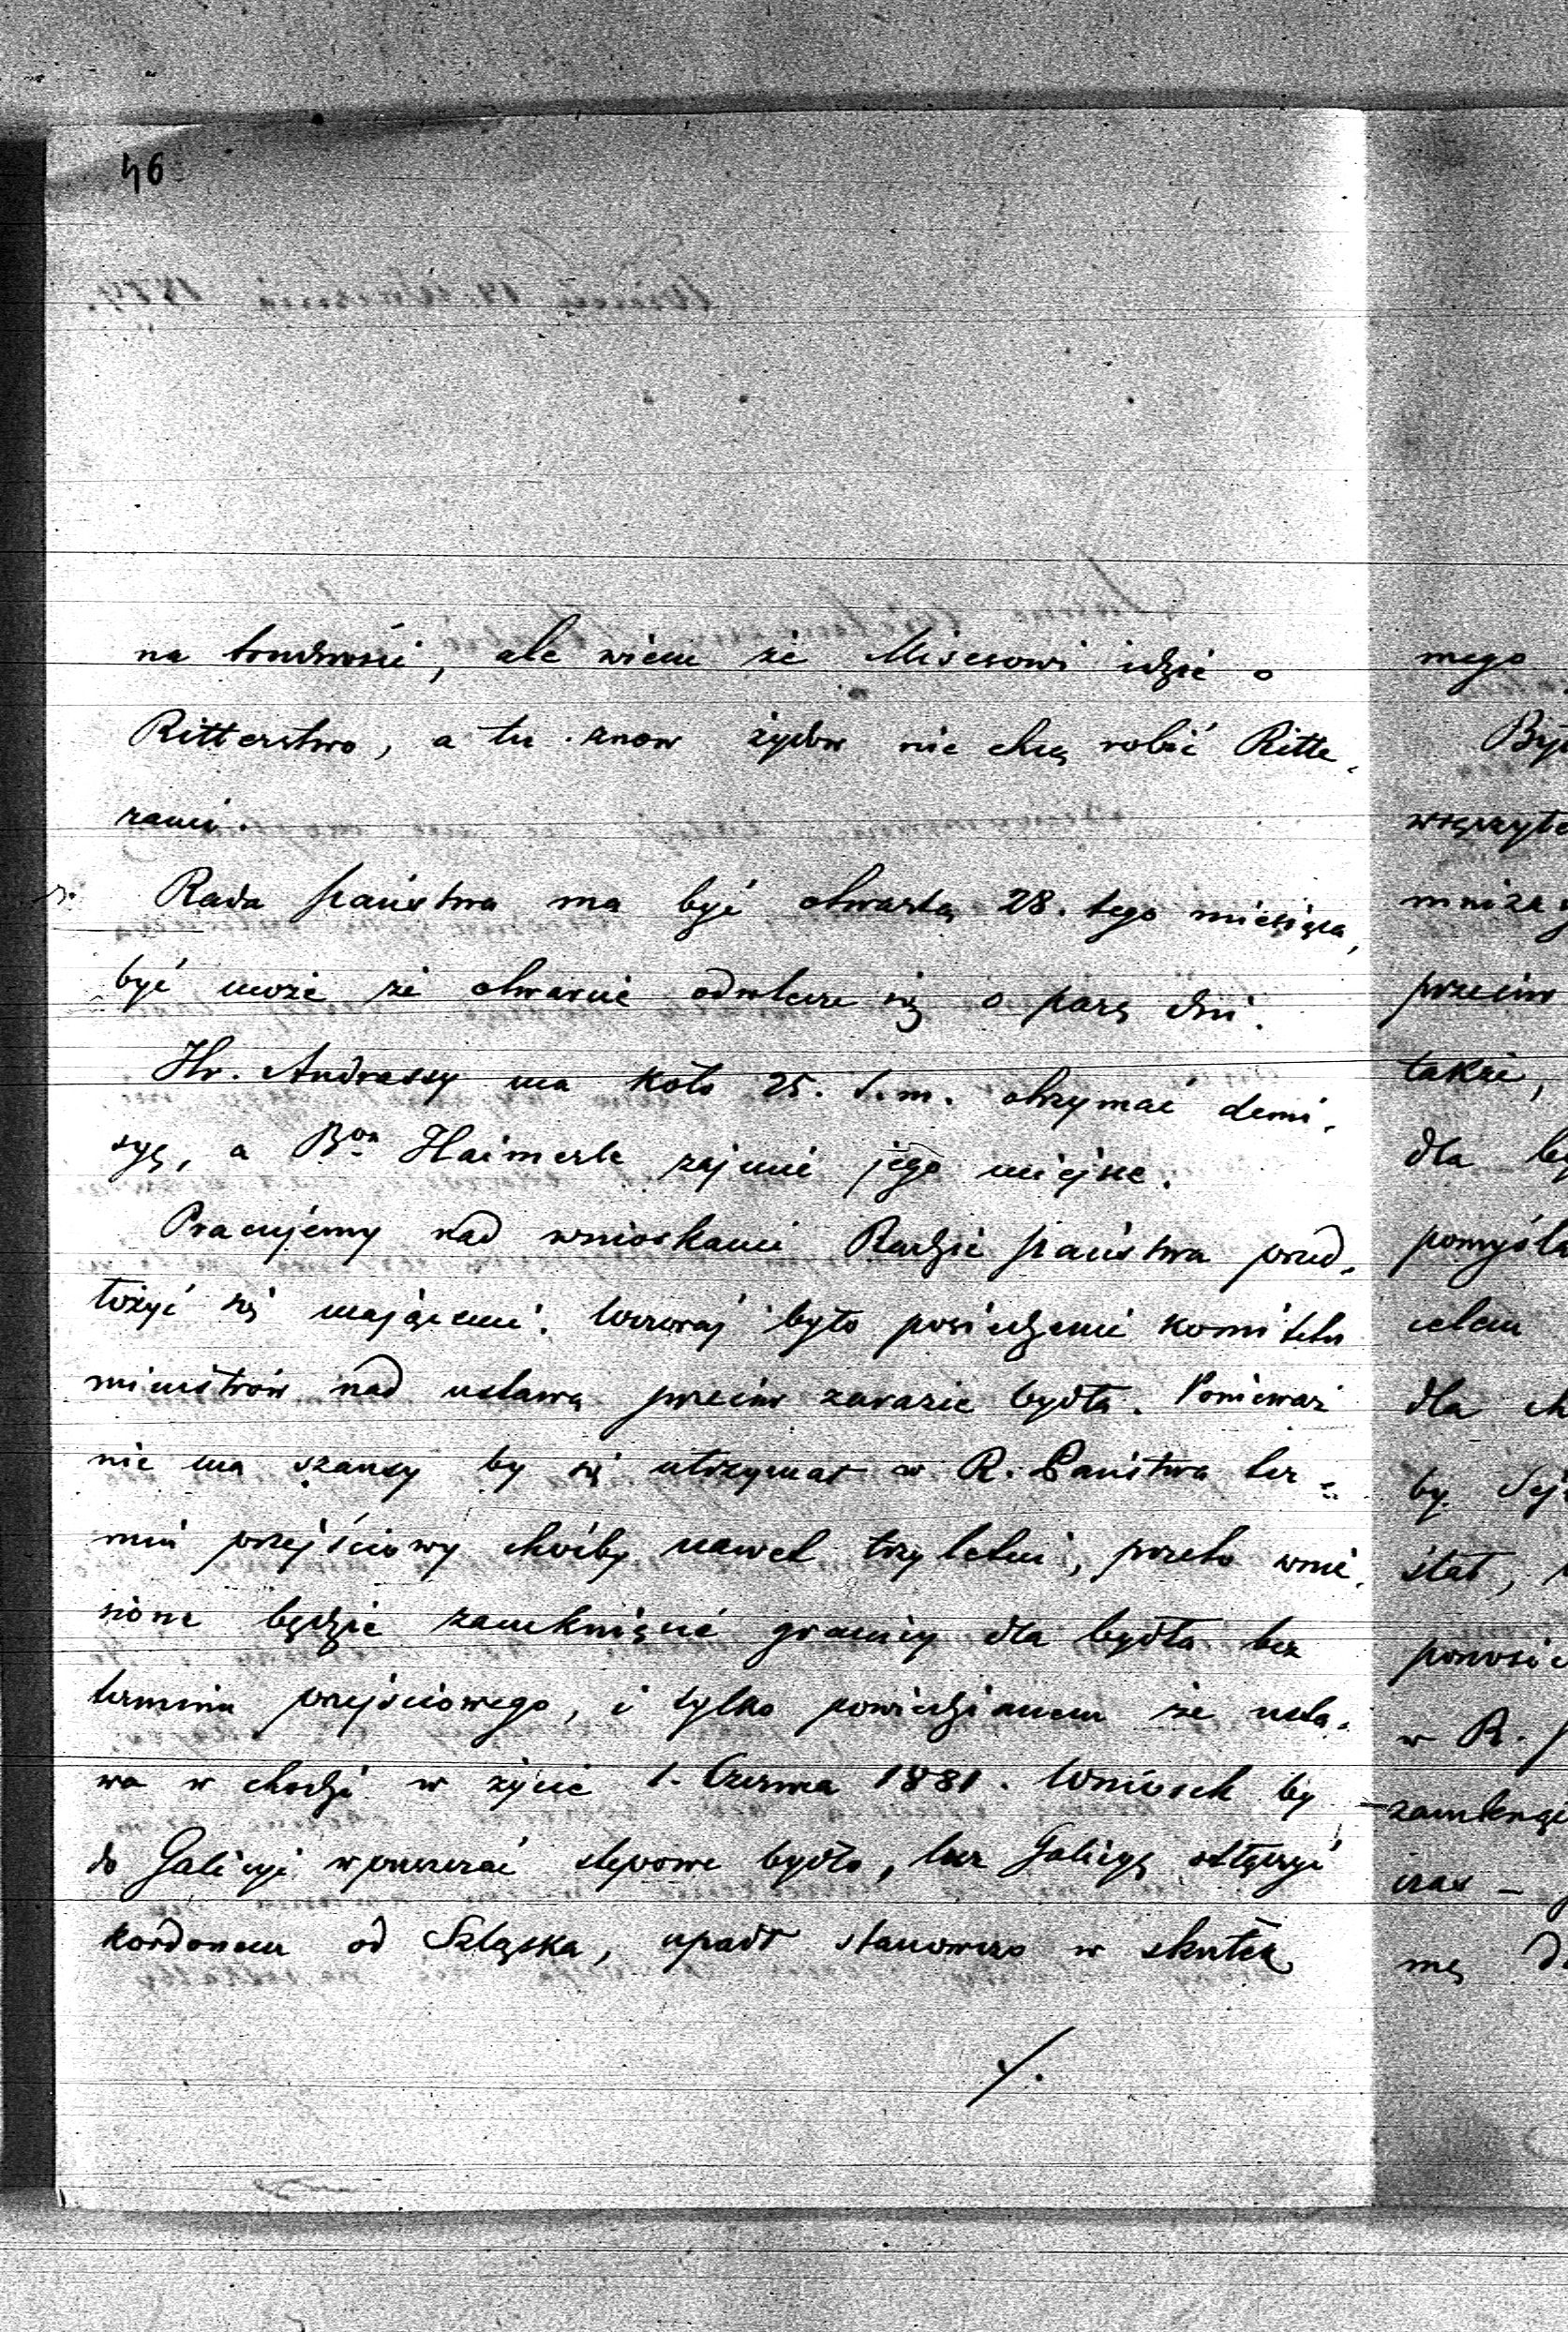 46
na trudności, ale wiem że Misesowi idzie o
Ritterstwo, a tu znow żydów nie chcą robić Ritte,
rami.
Rada państwa ma być otwartą 28. tego miesiąca,
być może że otwarcie odwlecze się o parę dni.
Hr. Andrassy ma koło 25. t.m. otrzymać demi,
syę, a Bon Haimerle zajmie jego miejsce.
Pracujemy nad wnioskami Radzie państwa przed,
łożyć się mającemi. Wczoraj było posiedzenie komitetu
ministrów nad ustawą przeciw zarazie bydła. Ponieważ
nie ma szansy by się utrzymał w R. Państwa ter=
min przejściowy choćby nawet trzyletni, przeto wnie,
sione będzie zamknięcie granicy dla bydła bez
terminu przejściowego, i tylko powiedzianem że usta,
wa w chodzi w życie 1. Czerwca 1881. Wniosek by
do Galicyi wpuszczać stepowe bydło, lecz Galicyę odłączyć
kordonem od Szląska, upadł stanowczo w skutek
./.
mego
przeciw
także,
dla
celem
dla
by
w R.
czas –